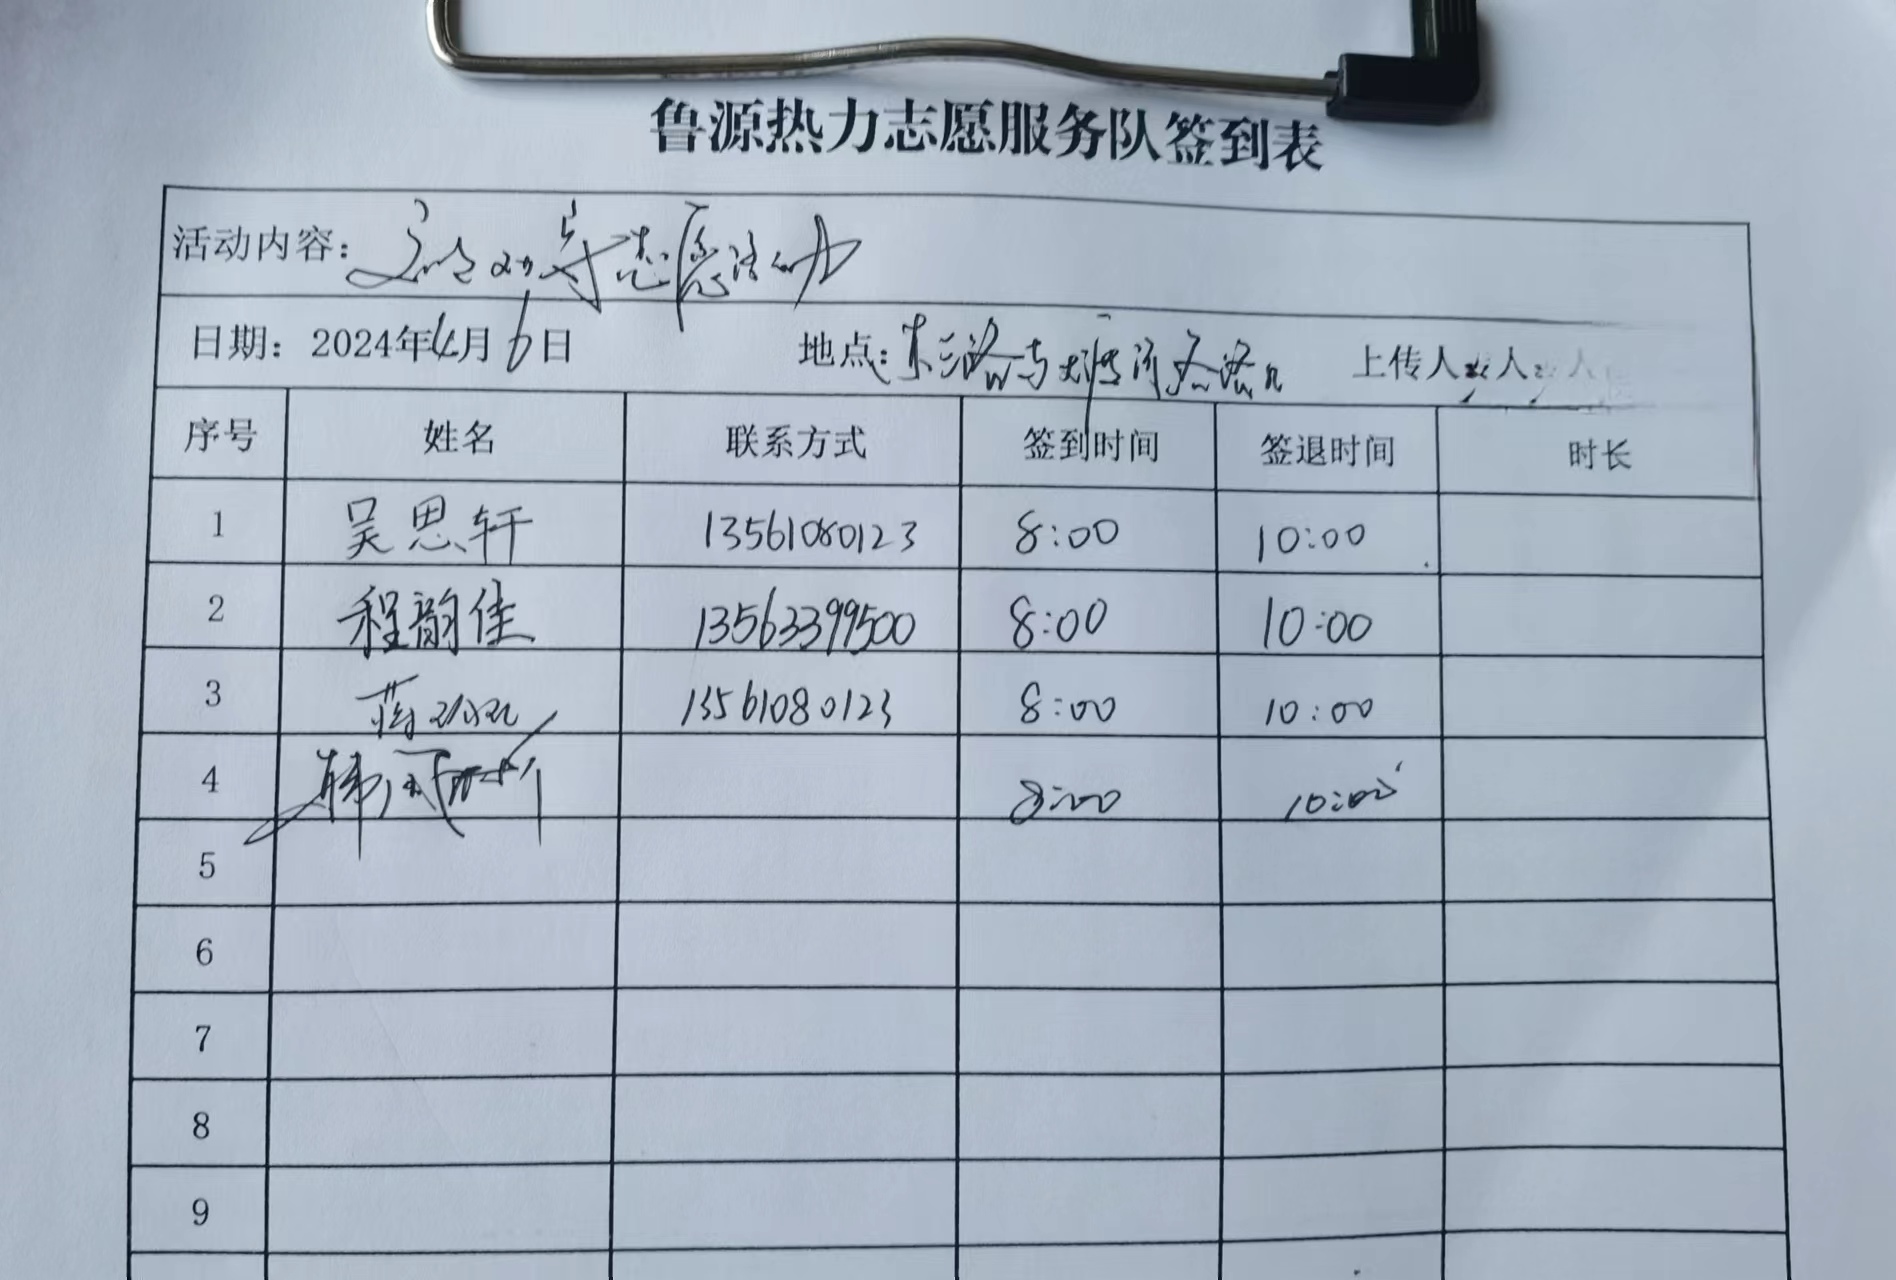 鲁源热力志愿服务队签到表
活动内容: 志愿活动
日期: 2024年4月6日 地点: 东三路与 上传人
序号 姓名 联系方式 签到时间 签退时间 时长
1 吴思轩 13561080123 8:00 10:00
2 程韵佳 13563399500 8:00 10:00
3 13561080123 8:00 10:00
4 韩 8:00 10:00
5
6
7
8
9